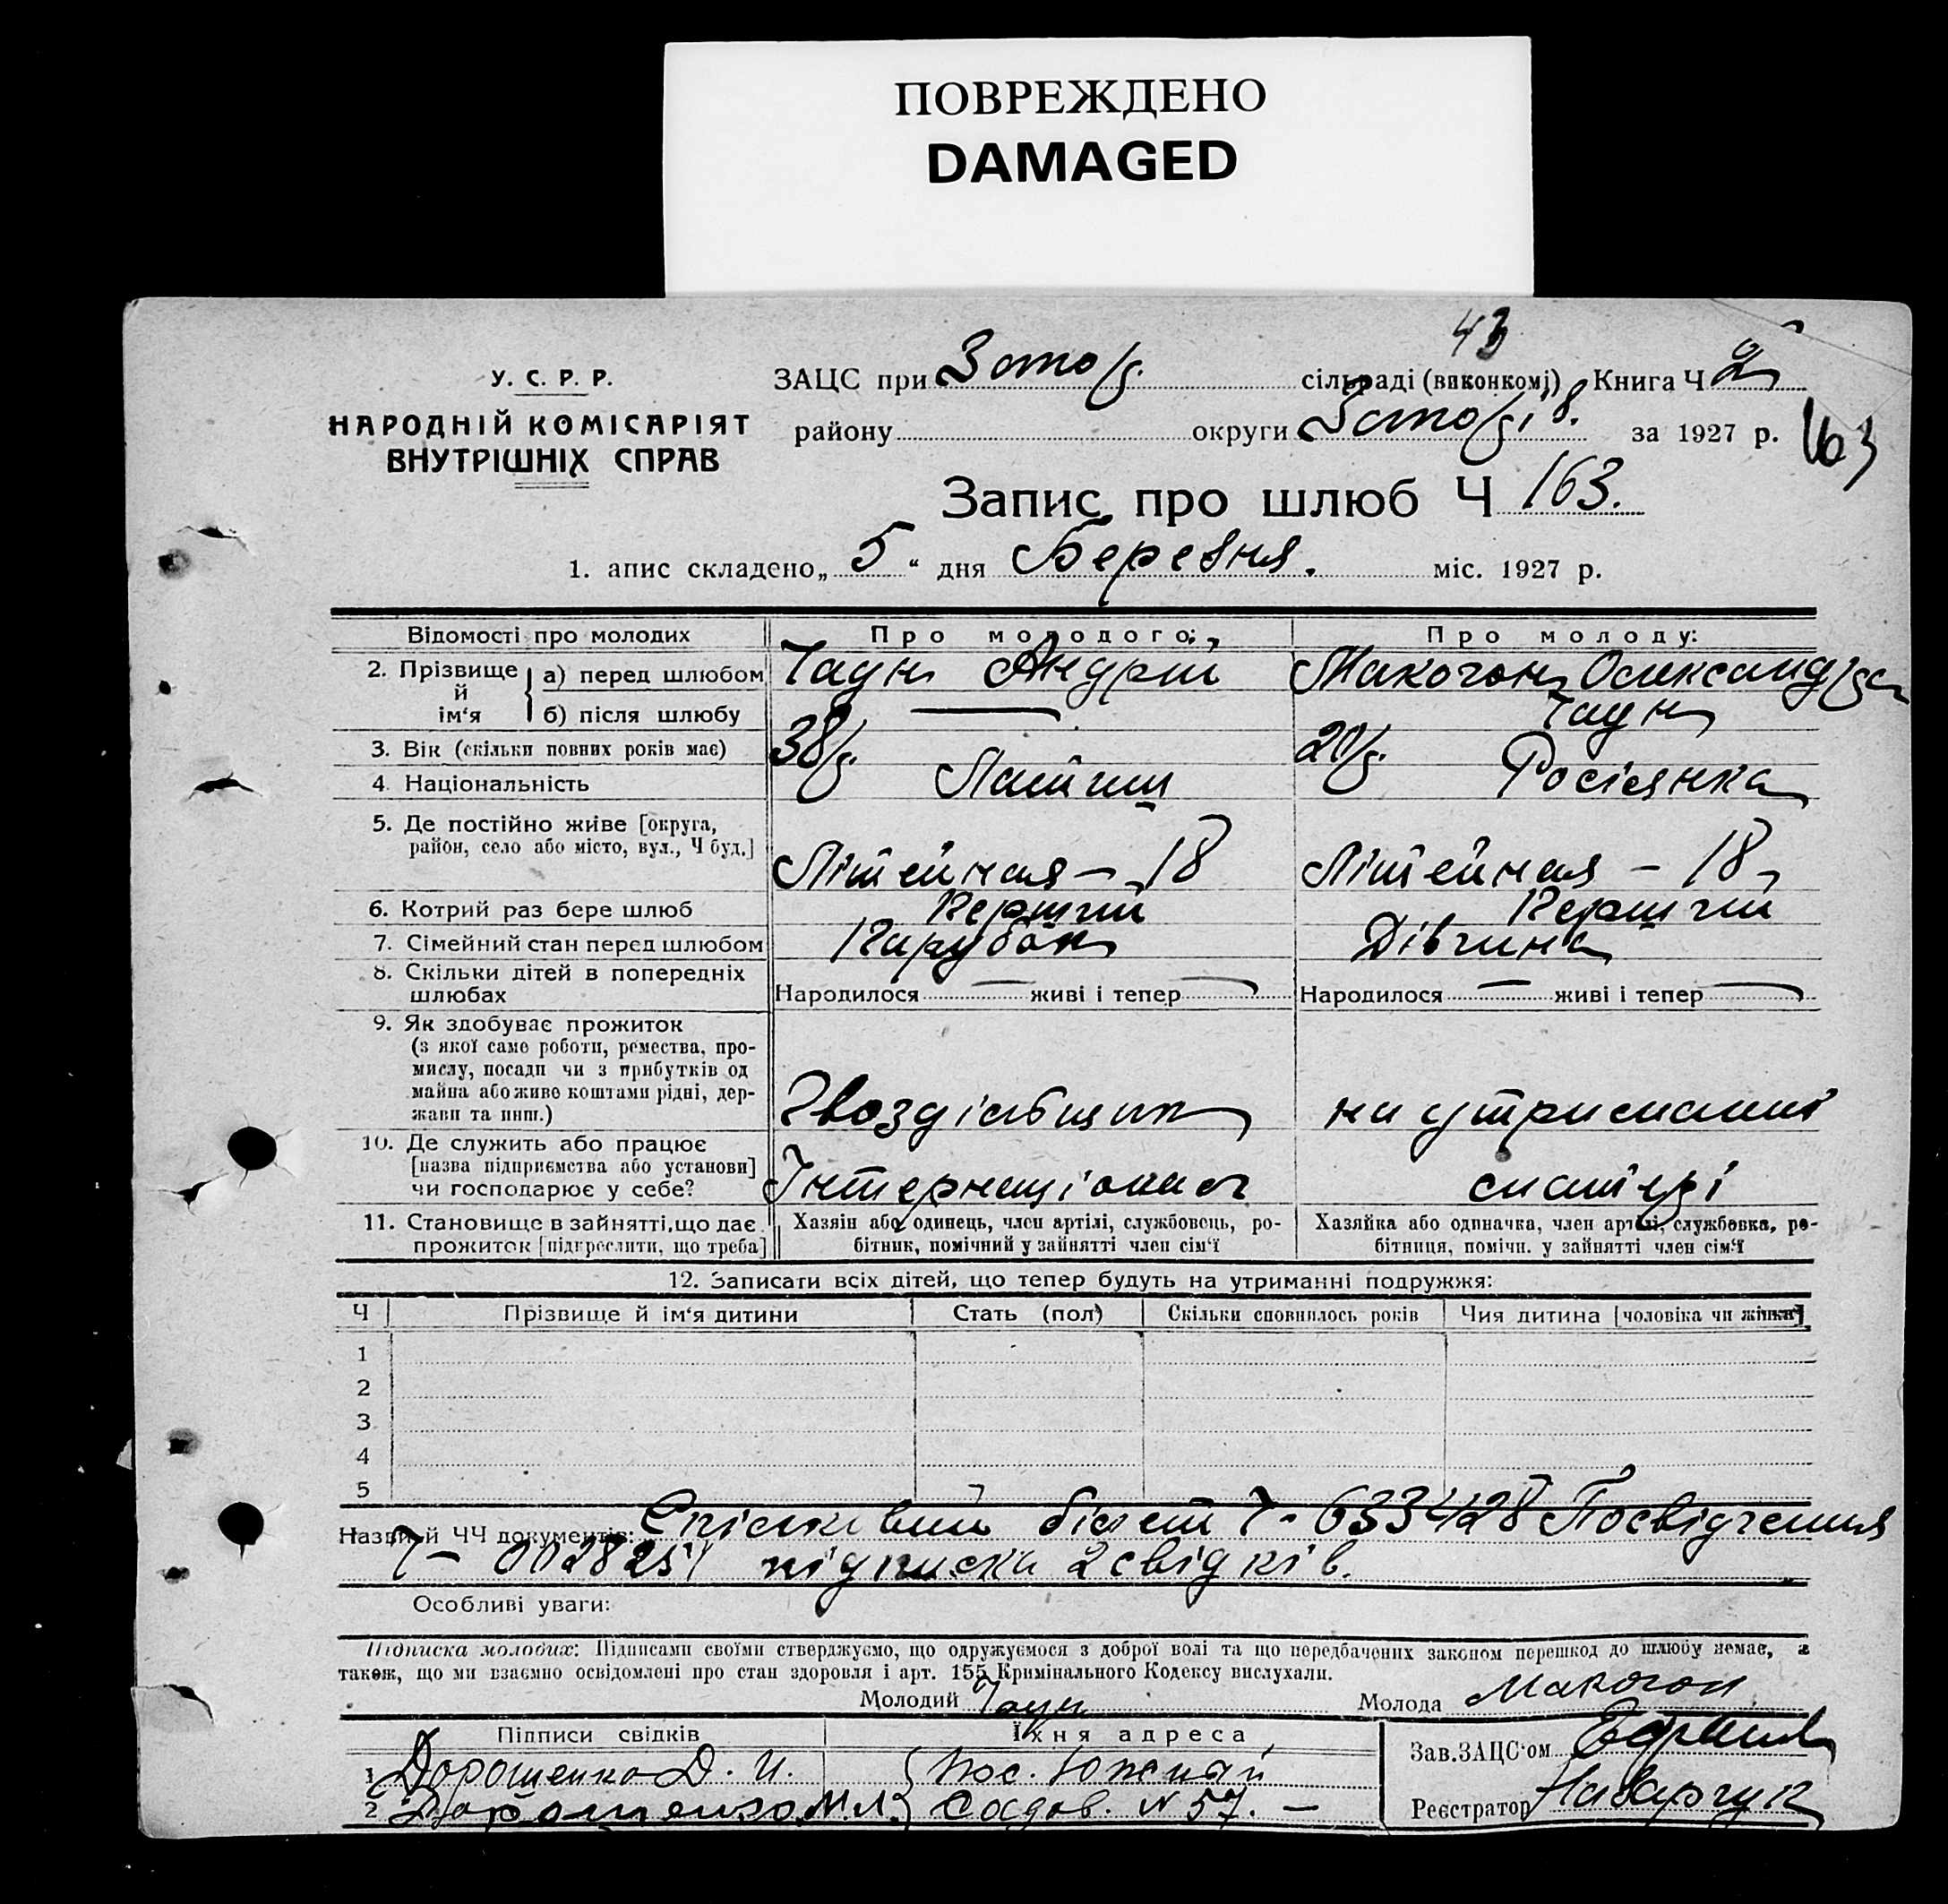 ПОВРЕЖДЕНО
DAMAGED
43
У. С. Р. Р.
НАРОДНІЙ КОМІСАРІЯТ
ВНУТРІШНІХ СПРАВ
ЗАЦС при Запо/ж. сільраді (виконкомі) Книга Ч 2
району округи за 1927 р. 163
Запис про шлюб Ч 163.
1. апис складено „ 5 “ дня Березня. міс. 1927 р.
Відомості про молодих Про молодого: Про молоду:
2. Прізвище й ім‘я а) перед шлюбом Чаун Андрій Макогон Олександра
б) після шлюбу — Чаун
3. Вік (скільки повних років має) 38 р. 20 р.
4. Національність Латиш Росіянка
5. Де постійно живе [округа,
район, село або місто, вул., Ч буд.] Літейная – 18 Літейная – 18
6. Котрий раз бере шлюб Перший Перший
7. Сімейний стан перед шлюбом Парубок Дівчина
8. Скільки дітей в попередніх
шлюбах Народилося — живі і тепер — Народилося — живі і тепер —
9. Як здобуває прожиток
(з якої саме роботи, ремества, про-
мислу, посади чи з прибутків од
майна або живе коштами рідні, дер-
жави та инш.) Гвоздільщик на утриманні
10. Де служить або працює
[назва підприємства або установи]
чи господарює у себе? Інтернаціонал матері
11. Становище в зайнятті, що дає
прожиток [підкреслити, що треба]
Хазяін або одинець, член артілі, службовець, ро-
бітник, помічний у зайнятті член сім‘ї
Хазяйка або одиначка, член артілі, службовка, ро-
бітниця, помічн. у зайнятті член сім‘ї
12. Записати всіх дітей, що тепер будуть на утриманні подружжя:
Ч Прізвище й ім‘я дитини Стать (пол) Скільки сповнилось років Чия дитина [чоловіка чи жінки]
1
2
3
4
5
Назви й ЧЧ документів: білет Ч- 633428 Посвідчення
Ч – 0028251 підписка 2 свідків.
Особливі уваги:
Підписка молодих: Підписами своїми стверджуємо, що одружуємося з доброї волі та що передбачених законом перешкод до шлюбу немає, а
також, що ми взаємно освідомлені про стан здоровля і арт. 155 Кримінального Кодексу вислухали.
Молодий Чаун Молода Макогон
Підписи свідків Їхня адреса
Зав. ЗАЦС‘ом
1 Дорошенко Д. И. Пос. Южный
2 Дорошенко М. Л. Садов. N 57. –
Реєстратор